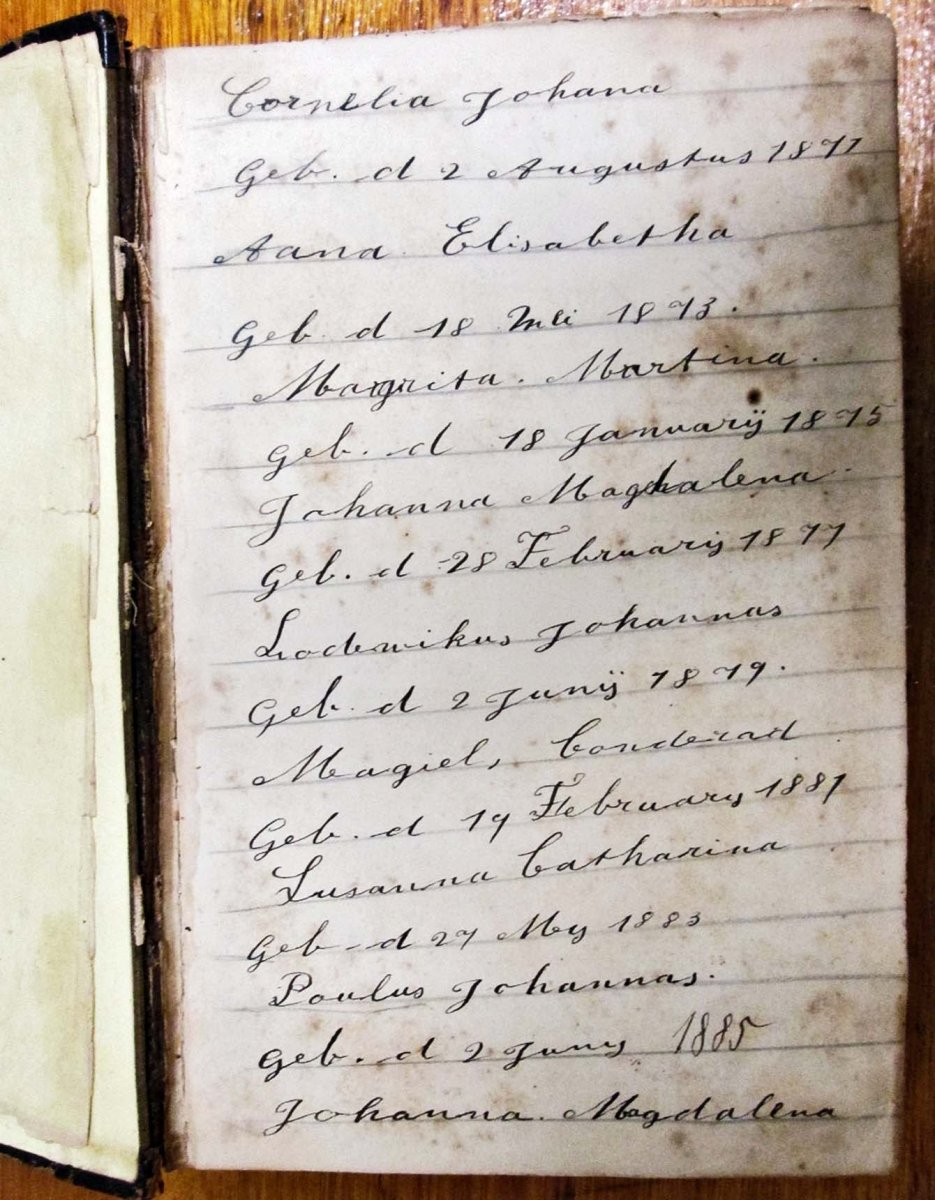 Cornelia Johana
Geb. d 2 Augustus 1871
Aana Elisabetha
Geb d 18 Mei 1873.
Magrita. Martina.
geb. d 18 Januarÿ 1875
Johanna Magdalena.
Geb. d 28 Februarij 1877
Lodewikus Johannas
Geb. d 2 Junÿ 1879.
Magiel, Conderad
Geb. d 19 February 1881
Susanna Catharina
Geb d 27 Mey 1883
Poulus Johannas.
Geb. d 2 Juny 1885
Johanna. Magdalena